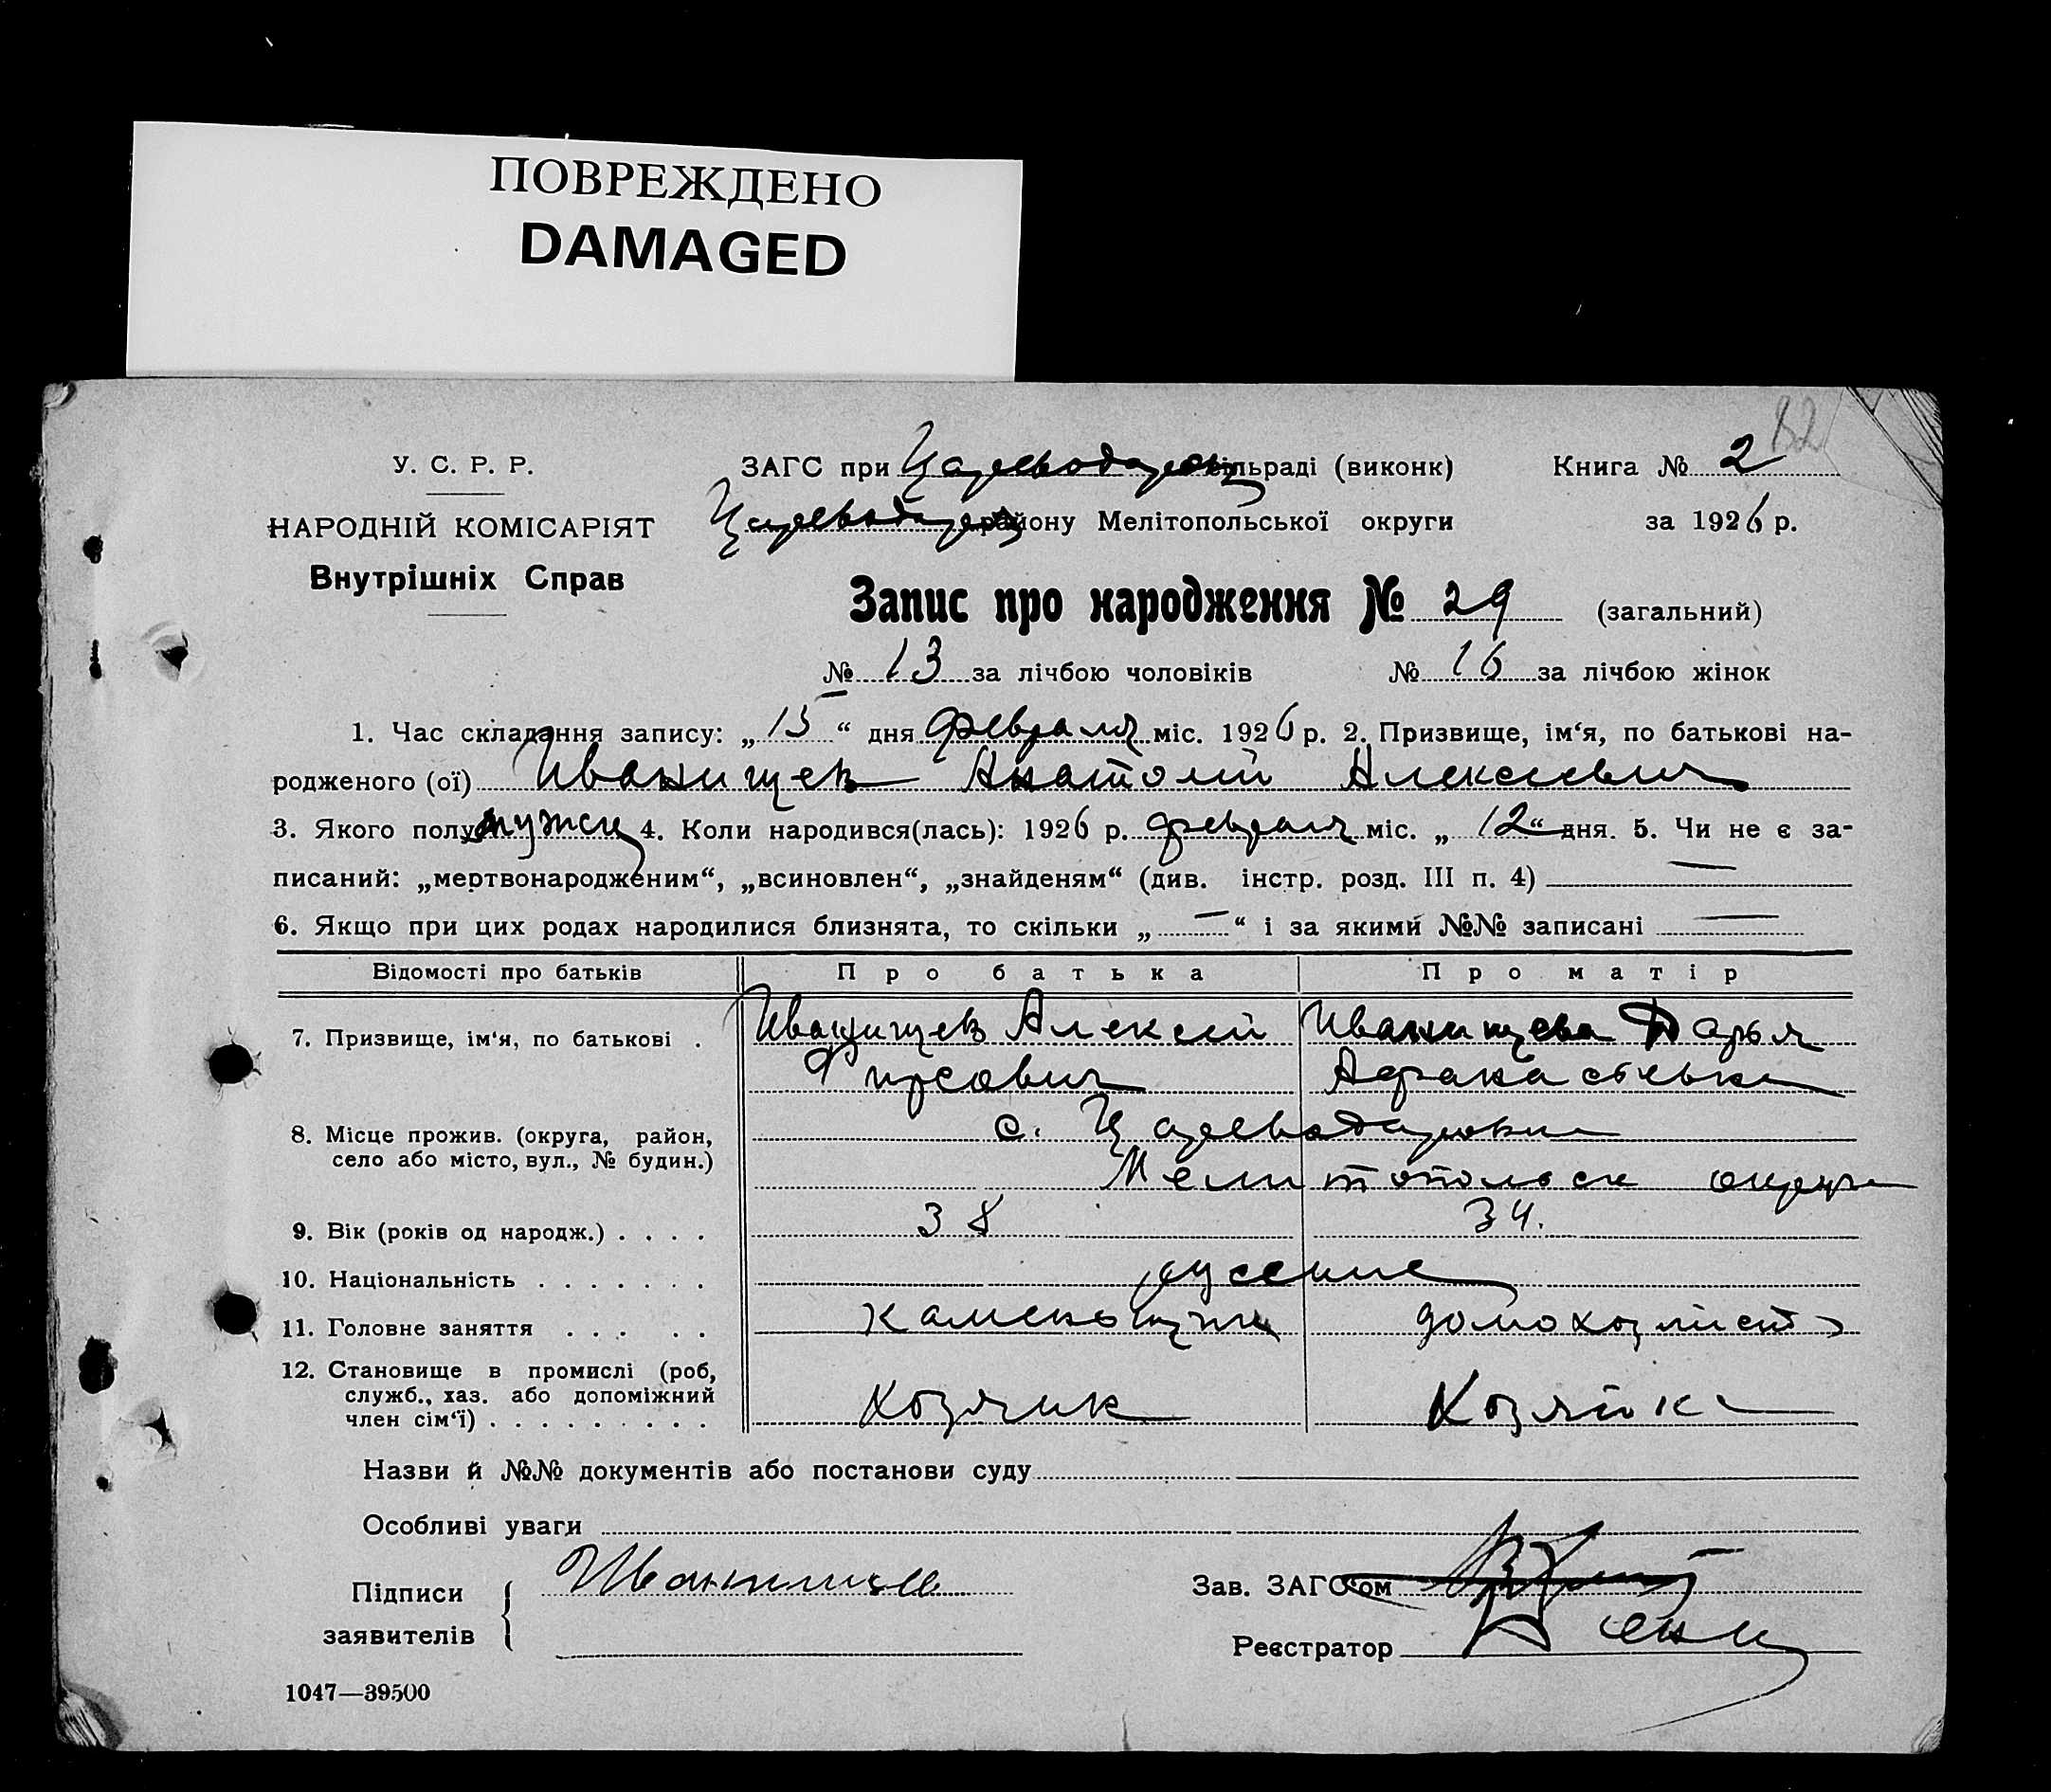 ПОВРЕЖДЕНО
DAMAGED
82
У. С. Р. Р.
ЗАГС при Цареводаров сільраді (виконк)
Книга № 2
НАРОДНІЙ КОМІСАРІЯТ
Цареводаров району Мелітопольської округи
за 1926 р.
Внутрішніх Справ
Запис про народження № 29 (загальний)
№ 13 за лічбою чоловіків № 16 за лічбою жінок
1. Час складання запису: „15“ дня февраля міс. 1926 р. 2. Призвище, ім‘я, по батькові на-
родженого (ої) Иванищев Анатолій Алексеевич
3. Якого полу мужск 4. Коли народився(лась): 1926 р. февраля міс. „12“ дня. 5. Чи не є за-
писаний: „мертвонародженим“, „всиновлен“, „знайденям“ (див. інстр. розд. III п. 4) —
6. Якщо при цих родах народилися близнята, то скільки „—“ і за якими №№ записані —
Відомості про батьків Про батька Про матір
7. Призвище, ім‘я, по батькові . Иванищев Алексей Иванищева Дарья
Фирсович Афанасьевна
8. Місце прожив. (округа, район, с. Цареводаровки
село або місто, вул., № будин.) Мелитопольск округи
9. Вік (років од народж.) . . . . 38 34.
10. Національність . . . . . . . русские
11. Головне заняття . . . . . каменьщик домохозяист
12. Становище в промислі (роб,
служб., хаз. або допоміжний
член сім‘ї) . . . . . . . . . Хозяик Хозяйка
Назви й №№ документів або постанови суду
Особливі уваги
Підписи
заявителів
Иванищев
Зав. ЗАГС‘ом
Реєстратор
1047—39500